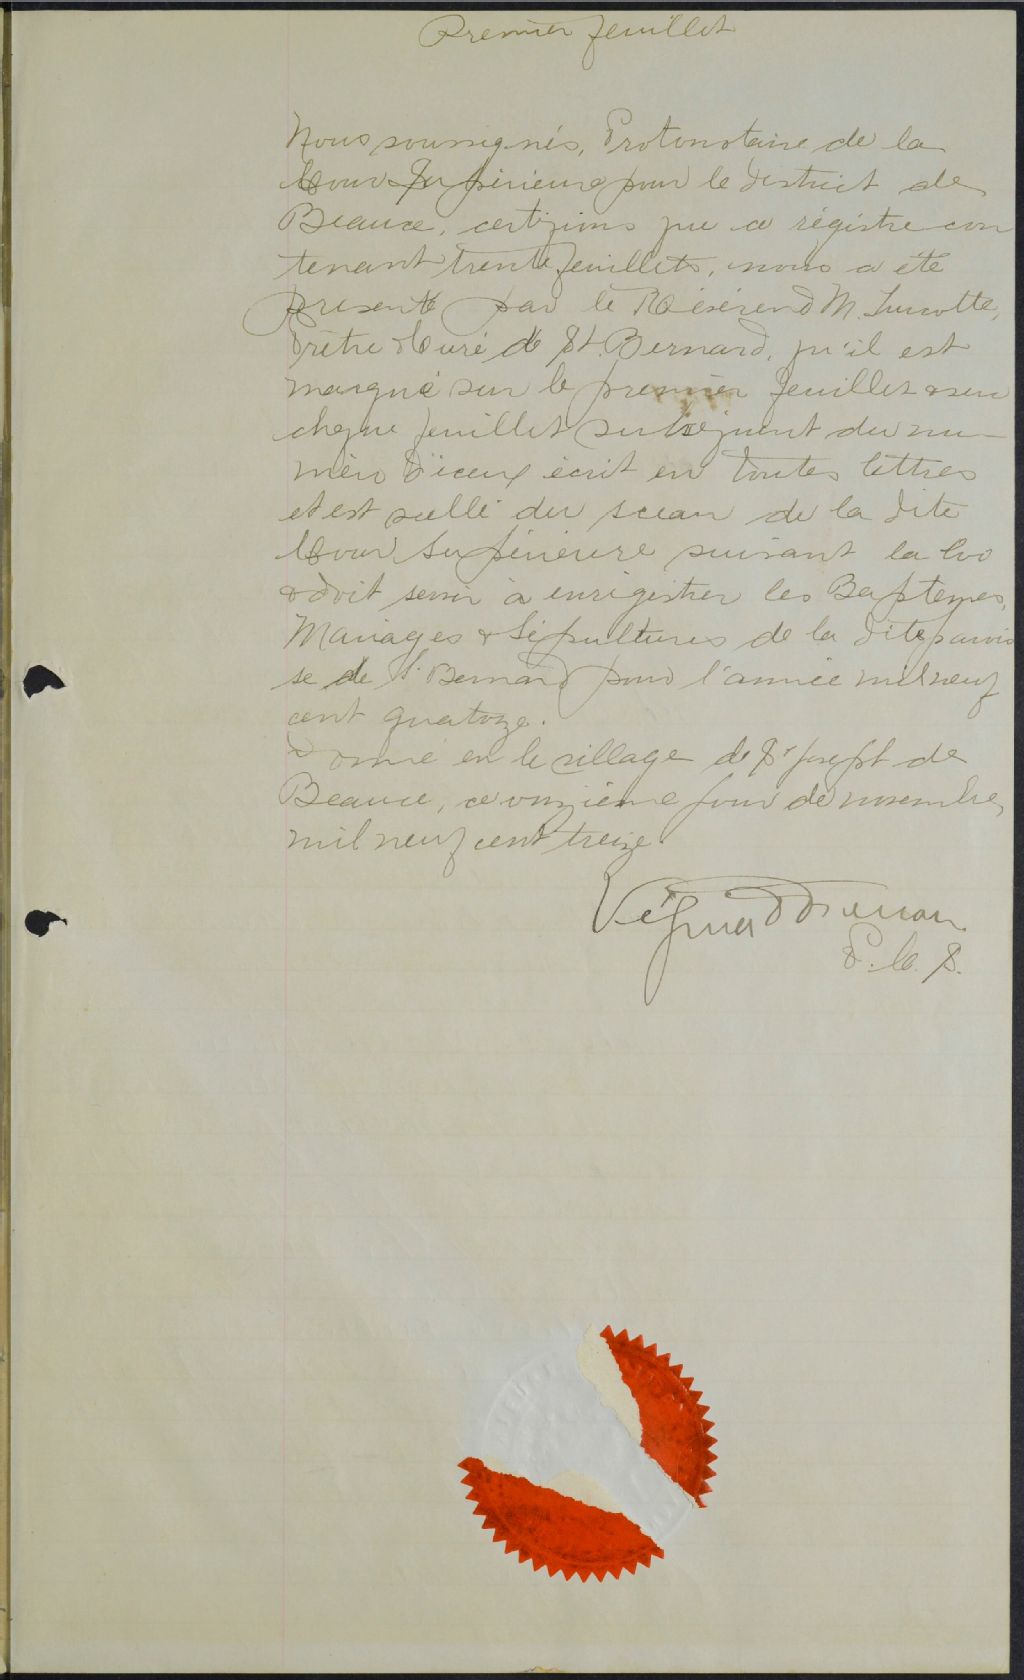 Premier feuillet
Nous soussignés, Protonotaire de la
Cour Supérieure pour le district de
Beauce, certifions que ce régistre con
tenant trente feuillets, nous a été
présenté par le Révérend M. Turcotte,
Prêtre Curé de St. Bernard, qu'il est
marqué sur le premier feuillet & sur
chaque feuillet subséquent du nu-
méro d'iceux écrit en toutes lettres
et est scellé du sceau de la dite
Cour Supérieure suivant la loi
& doit servir à enrégistrer les Baptemes,
Mariages & Sépultures de la dite parois
se de St Bernard pour l'année mil neuf
cent quatorze.
Donné en le village de St Joseph de
Beauce, ce onzième jour de novembre,
mil neuf cent treize.
P. C. S.